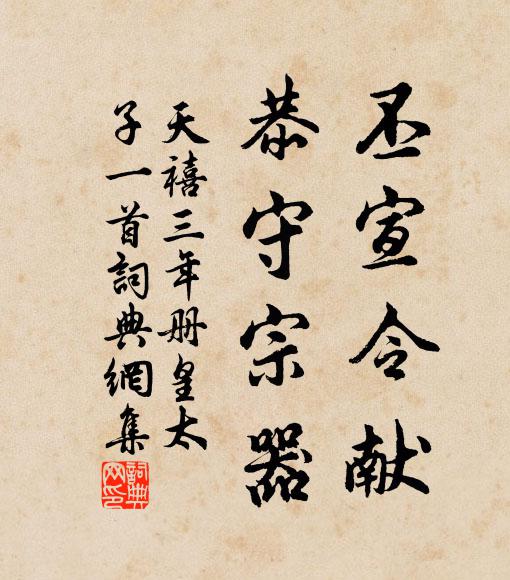 丕宣令献
恭守宗器
天禧三年册皇太
子一首詞典網集
詞典
网印